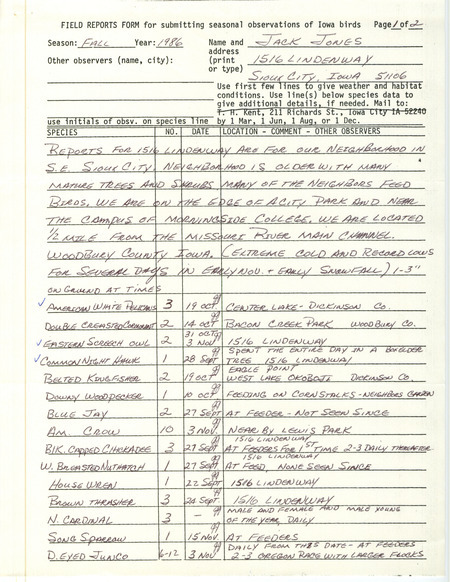 FIELD REPORTS FORM for submitting seasonal observations of Iowa birds Page 1 of 2
Season: FALL Year: 1986 Name and JACK JONES
Other observers (name, city): address 1516 LINDENWAY
(print
or type) SIOUX CITY, IOWA 51106
Use first few lines to give weather and habitat
conditions. Use line(s) below species data to
give additional details, if needed. Mail to:
T. H. Kent, 211 Richards St., Iowa City IA 52240
use initials of obsv. on species line by 1 Mar, 1 Jun, 1 Aug, or 1 Dec.
SPECIES NO. DATE LOCATION - COMMENT - OTHER OBSERVERS
REPORTS FOR 1516 LINDENWAY ARE FOR OUR NEIGHBORHOOD IN
S.E. SIOUX CITY. NEIGHBORHOOD IS OLDER WITH MANY
MATURE TREES AND SHRUBS. MANY OF THE NEIGHBORS FEED
BIRDS, WE ARE ON THE EDGE OF A CITY PARK AND NEAR
THE CAMPUS OF MORNINGSIDE COLLEGE. WE ARE LOCATED
1/2 MILE FROM THE MISSOURI RIVER MAIN CHANNEL.
WOODBURY COUNTY IOWA. (EXTREME COLD AND RECORD LOWS
FOR SEVERAL DAYS IN EARLY NOV. + EARLY SNOWFALL) 1-3"
ON GROUND AT TIMES
✓ AMERICAN WHITE PELICANS 3 19 OCT CENTER LAKE - DICKINSON CO.
DOUBLE CREASTED CORMORANT 2 14 OCT BACON CREEK PARK WOODBURY CO.
✓ EASTERN SCREECH OWL 2 31 OCT 3 NOV 1516 LINDENWAY
✓ COMMON NIGHT HAWK 1 28 SEPT SPENT THE ENTIRE DAY IN A BOXELDER
TREE 1516 LINDENWAY
BELTED KINGFISHER 2 19 OCT EAGLE POINT
WEST LAKE OKOBOJI DICKINSON CO.
DOWNY WOODPECKER 1 10 OCT FEEDING ON CORNSTALKS - NEIGHBORS GARDEN
BLUE JAY 2 27 SEPT AT FEEDER - NOT SEEN SINCE
AM. CROW 10 3 NOV NEAR BY LEWIS PARK
BLK. CAPPED CHICKADEE 3 27 SEPT 1516 LINDENWAY
AT FEEDERS FOR 1ST TIME 2-3 DAILY THEREAFTER
W. BREASTED NUTHATCH 1 27 SEPT 1516 LINDENWAY
AT FEED, NONE SEEN SINCE
HOUSE WREN 1 22 SEPT 1516 LINDENWAY
BROWN THRASHER 3 24 SEPT 1516 LINDENWAY
N. CARDINAL 3 - MALE AND FEMALE AND MALE YOUNG
OF THE YEAR DAILY
SONG SPARROW 1 15 NOV AT FEEDERS
D. EYED JUNCO 6-12 3 NOV DAILY FROM THIS DATE - AT FEEDERS
2-3 OREGON RACE WITH LARGER FLOCKS